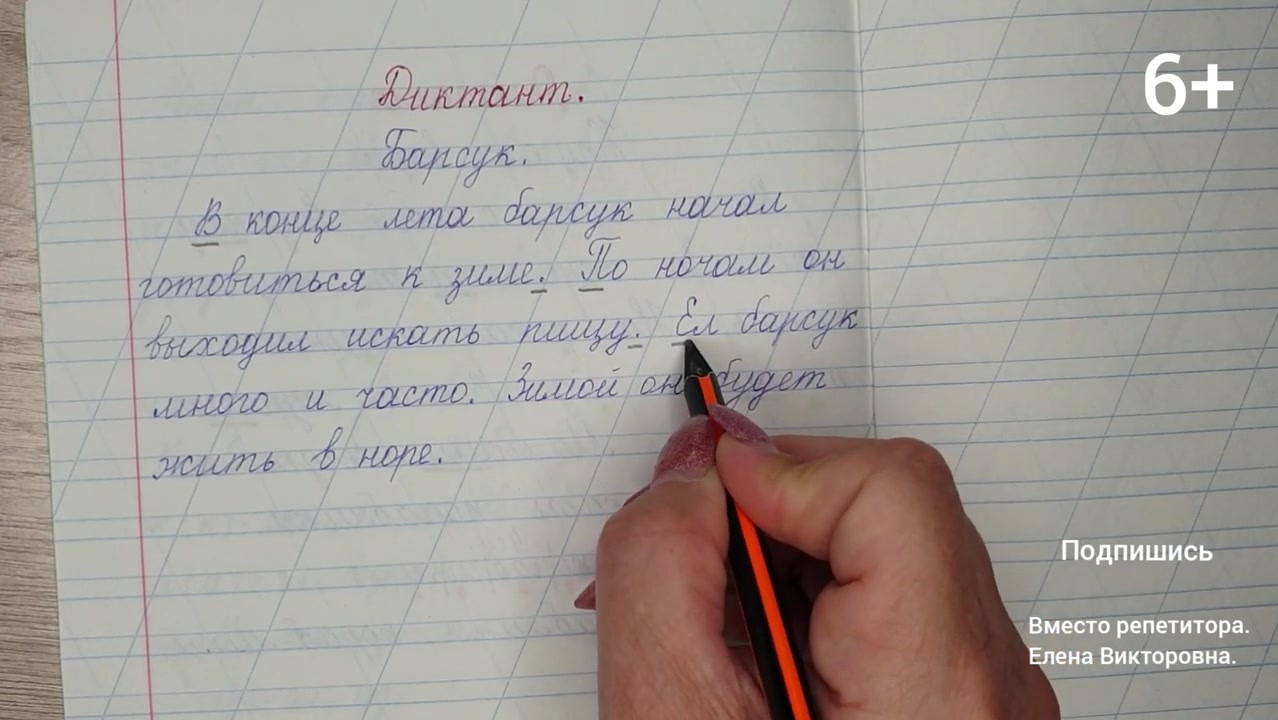 Диктант.
Барсук.
В конце лета барсук начал
готовиться к зиме. По ночам он
выходил искать пищу. Ел барсук
много и часто. Зимой он будет
жить в норе.
6+
Подпишись
Вместо репетитора.
Елена Викторовна.